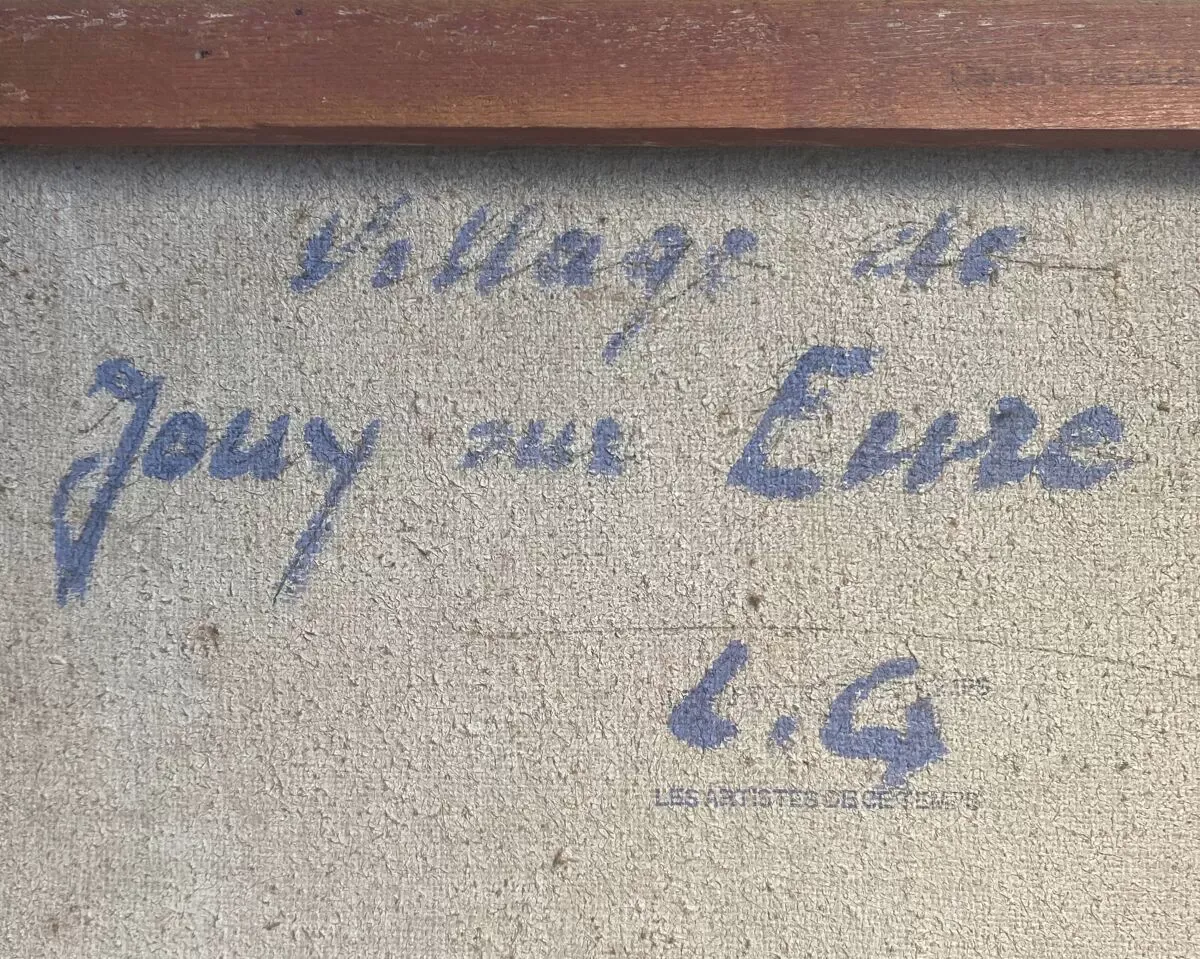 Village de
Jouy sur Eure
L.G
LES ARTISTES DE CE TEMPS